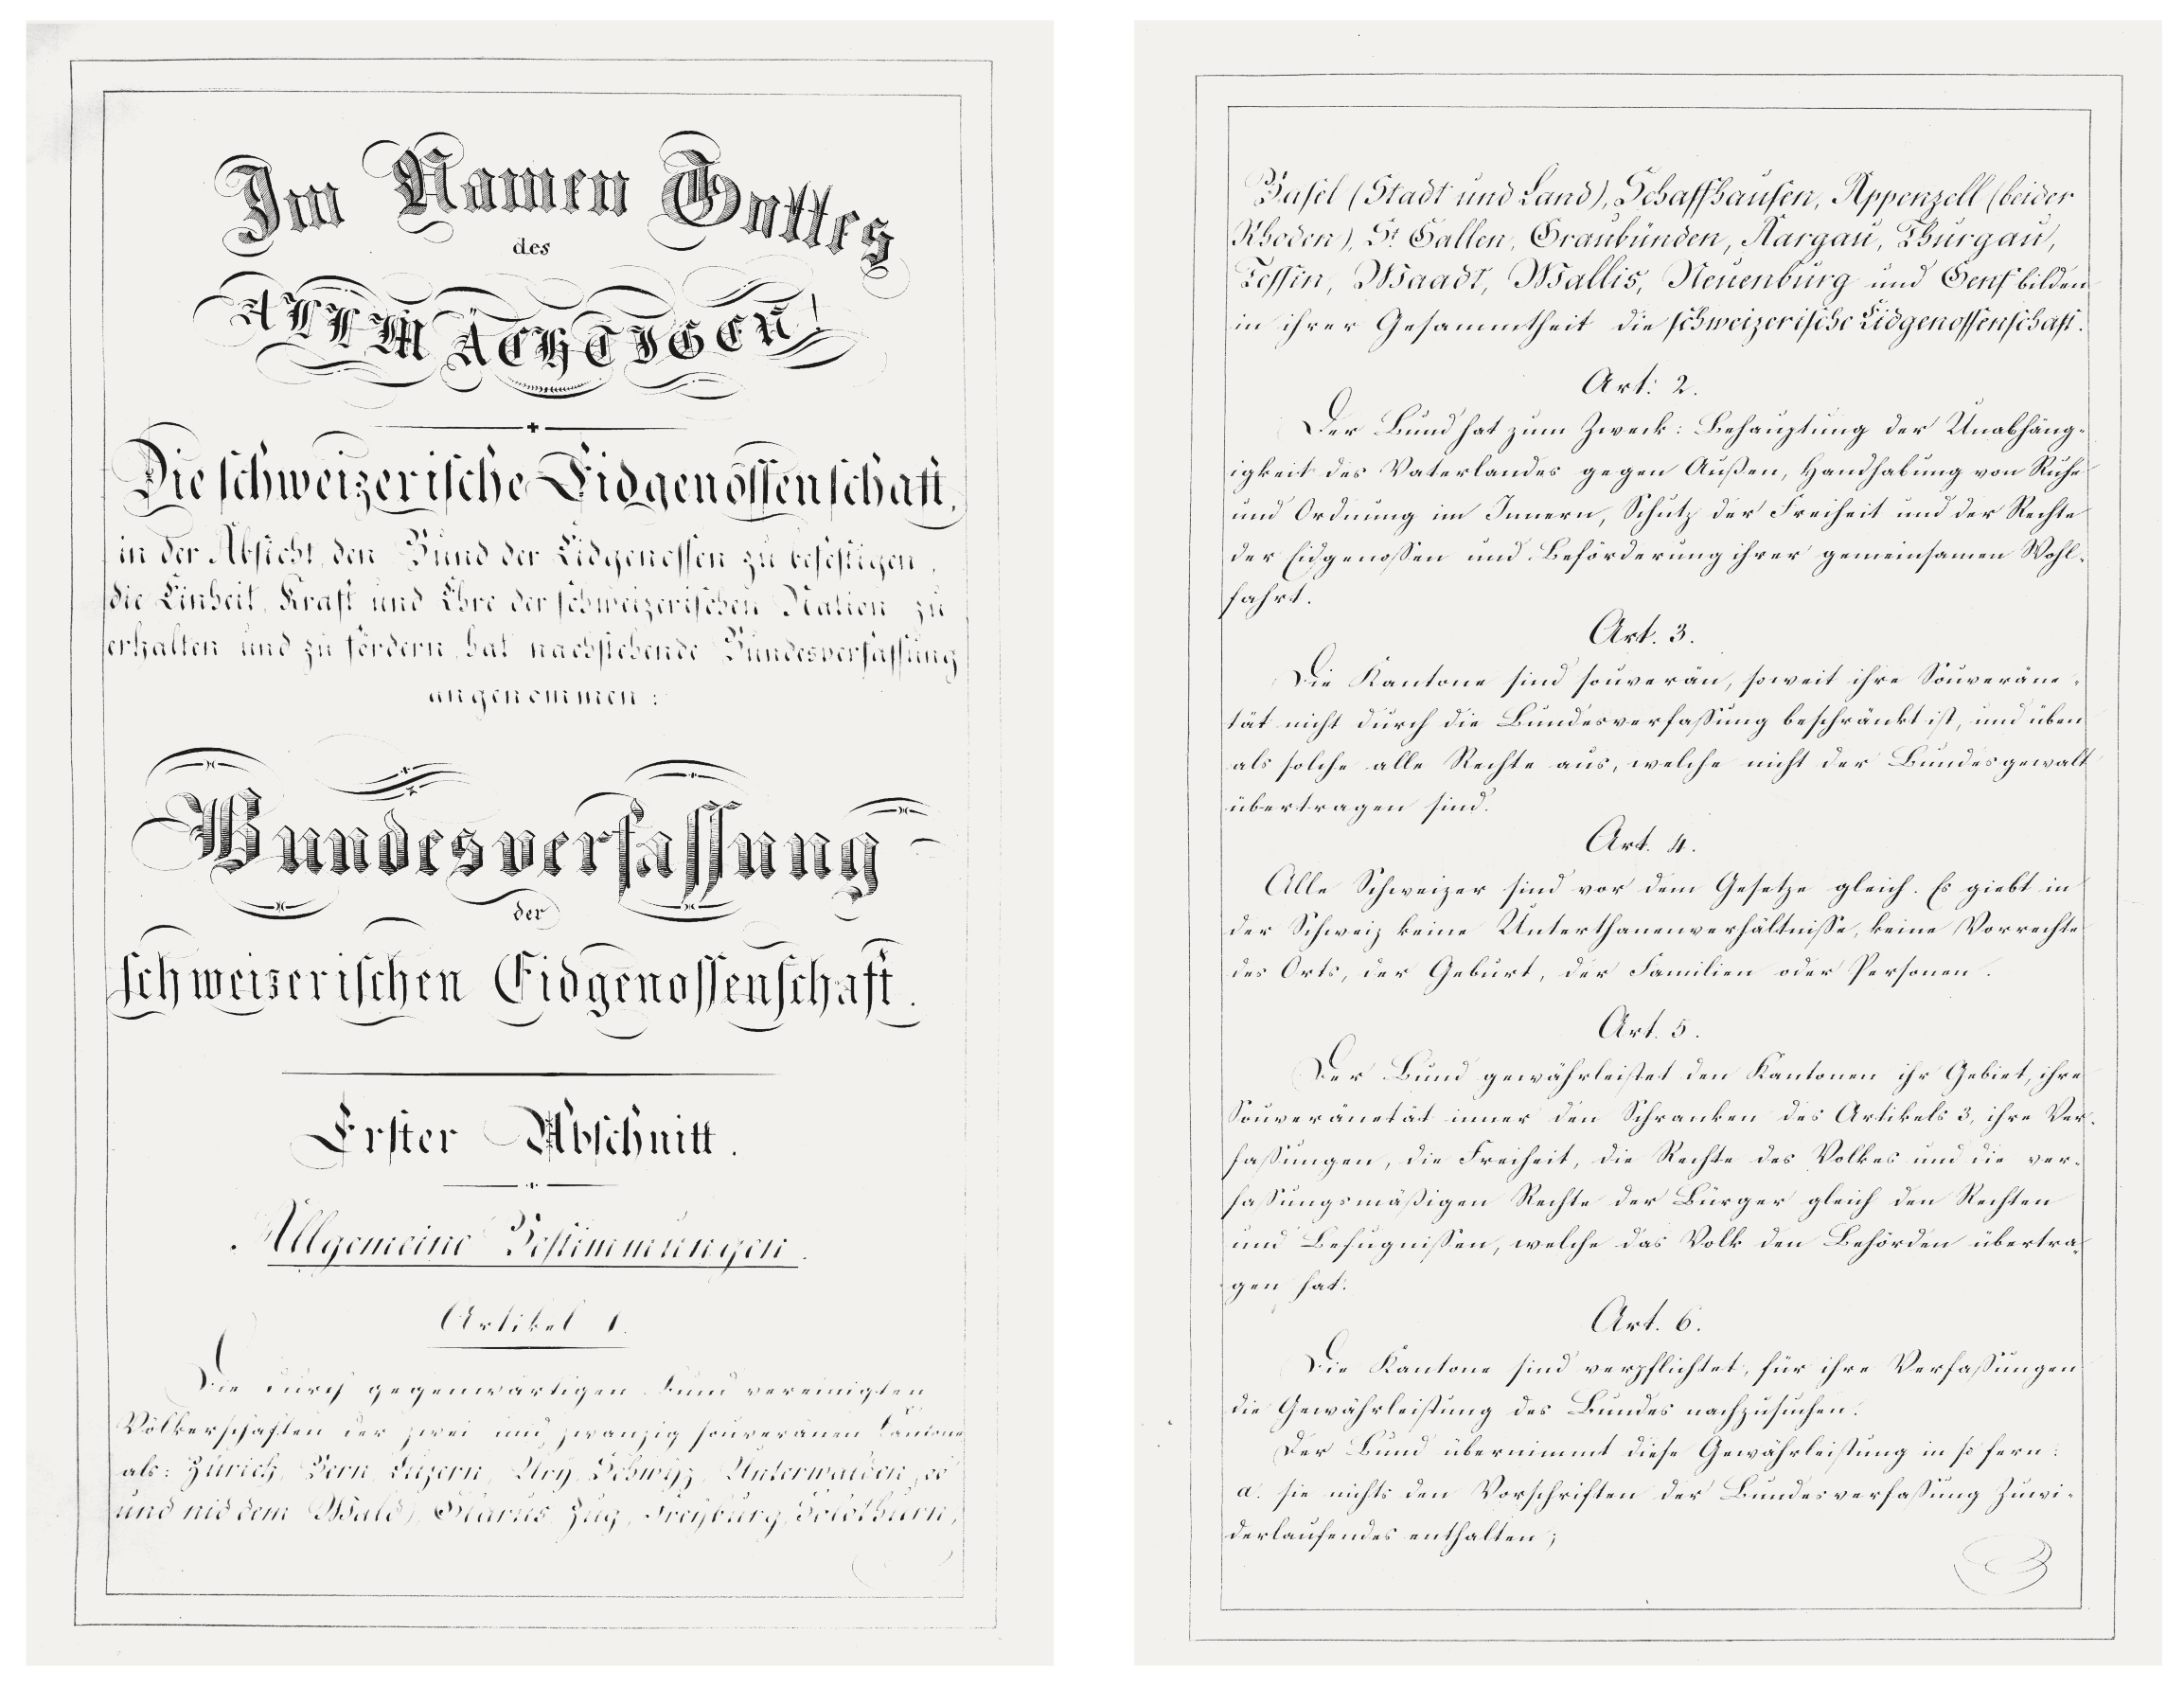 Im Namen Gottes
des
ALLMÄCHTIGEN!
Die schweizerische Eidgenossenschaft,
in der Absicht, den Bund der Eidgenossen zu befestigen,
die Einheit, Kraft und Ehre der schweizerischen Nation zu
erhalten und zu fördern, hat nachstehende Bundesverfassung
angenommen:
Bundesverfassung
der
schweizerischen Eidgenossenschaft.
Erster Abschnitt.
Allgemeine Bestimmungen.
Artikel 1.
Die durch gegenwärtigen Bund vereinigten
Völkerschaften der zwei und zwanzig souveränen Kantone
als: Zürich, Bern, Luzern, Ury, Schwyz, Unterwalden (ob
und nid dem Wald), Glarus, Zug, Freyburg, Solothurn,
Basel (Stadt und Land), Schaffhausen, Appenzell (beider
Rhoden), St Gallen, Graubünden, Aargau, Thurgau,
Tessin, Waadt, Wallis, Neuenburg und Genf bilden
in ihrer Gesammtheit die schweizerische Eidgenossenschaft.
Art: 2.
Der Bund hat zum Zweck: Behauptung der Unabhäng-
igkeit des Vaterlandes gegen Außen, Handhabung von Ruhe
und Ordnung im Innern, Schutz der Freiheit und der Rechte
der Eidgenoßen und Beförderung ihrer gemeinsamen Wohl-
fahrt.
Art. 3.
Die Kantone sind souverän, soweit ihre Souveräne-
tät nicht durch die Bundesverfaßung beschränkt ist, und üben
als solche alle Rechte aus, welche nicht der Bundesgewalt
übertragen sind.
Art. 4.
Alle Schweizer sind vor dem Gesetze gleich. Es giebt in
der Schweiz keine Unterthanenverhältniße, keine Vorrechte
des Orts, der Geburt, der Familien oder Personen.
Art. 5.
Der Bund gewährleistet den Kantonen ihr Gebiet, ihre
Souveränetät inner den Schranken des Artikels 3, ihre Ver-
faßungen, die Freiheit, die Rechte des Volkes und die ver-
faßungsmäßigen Rechte der Bürger gleich den Rechten
und Befugnißen, welche das Volk den Behörden übertra-
gen hat.
Art. 6.
Die Kantone sind verpflichtet, für ihre Verfaßungen
die Gewährleistung des Bundes nachzusuchen.
Der Bund übernimmt diese Gewährleistung in so fern:
a. sie nichts den Vorschriften der Bundesverfaßung Zuwi-
derlaufendes enthalten;